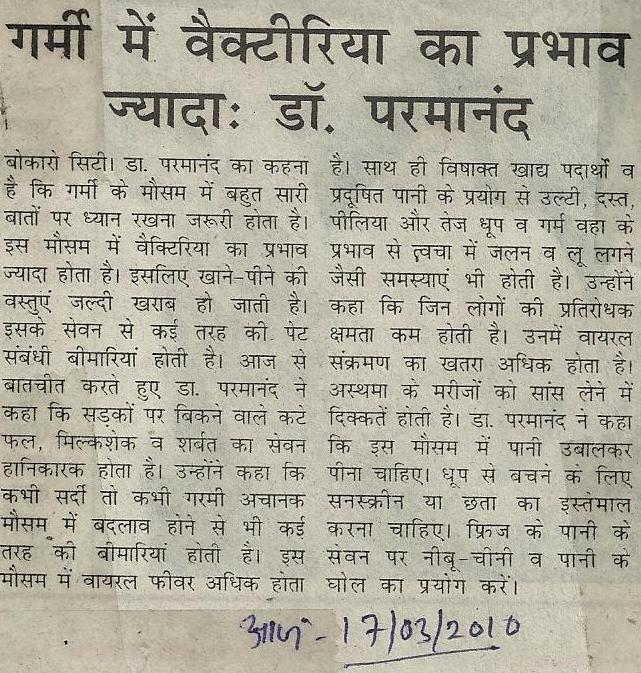 गर्मी में वैक्टीरिया का प्रभाव
ज्यादाः डॉ. परमानंद
बोकारो सिटी। डा. परमानंद का कहना
है कि गर्मी के मौसम में बहुत सारी
बातों पर ध्यान रखना जरूरी होता है।
इस मौसम में वैक्टिरिया का प्रभाव
ज्यादा होता है। इसलिए खाने-पीने की
वस्तुएं जल्दी खराब हो जाती है।
इसके सेवन से कई तरह की पेट
संबंधी बीमारियां होती है। आज से
बातचीत करते हुए डा. परमानंद ने
कहा कि सड़कों पर बिकने वाले कटे
फल, मिल्कशेक व शर्वत का सेवन
हानिकारक होता है। उन्होंने कहा कि
कभी सर्दी तो कभी गरमी अचानक
मौसम में बदलाव होने से भी कई
तरह की बीमारियां होती है। इस
मौसम में वायरल फीवर अधिक होता
है। साथ ही विषाक्त खाद्य पदार्थो व
प्रदूषित पानी के प्रयोग से उल्टी, दस्त,
पीलिया और तेज धूप व गर्म वहा के
प्रभाव से त्वचा में जलन व लू लगने
जैसी समस्याएं भी होती है। उन्होंने
कहा कि जिन लोगों की प्रतिरोधक
क्षमता कम होती है। उनमें वायरल
संक्रमण का खतरा अधिक होता है।
अस्थमा के मरीजों को सांस लेने में
दिक्कतें होती है। डा. परमानंद ने कहा
कि इस मौसम में पानी उबालकर
पीना चाहिए। धूप से बचने के लिए
सनस्क्रीन या छता का इस्तेमाल
करना चाहिए। फ्रिज के पानी के
सेवन पर नीबू-चीनी व पानी के
घोल का प्रयोग करें।
आज - 17/03/2010